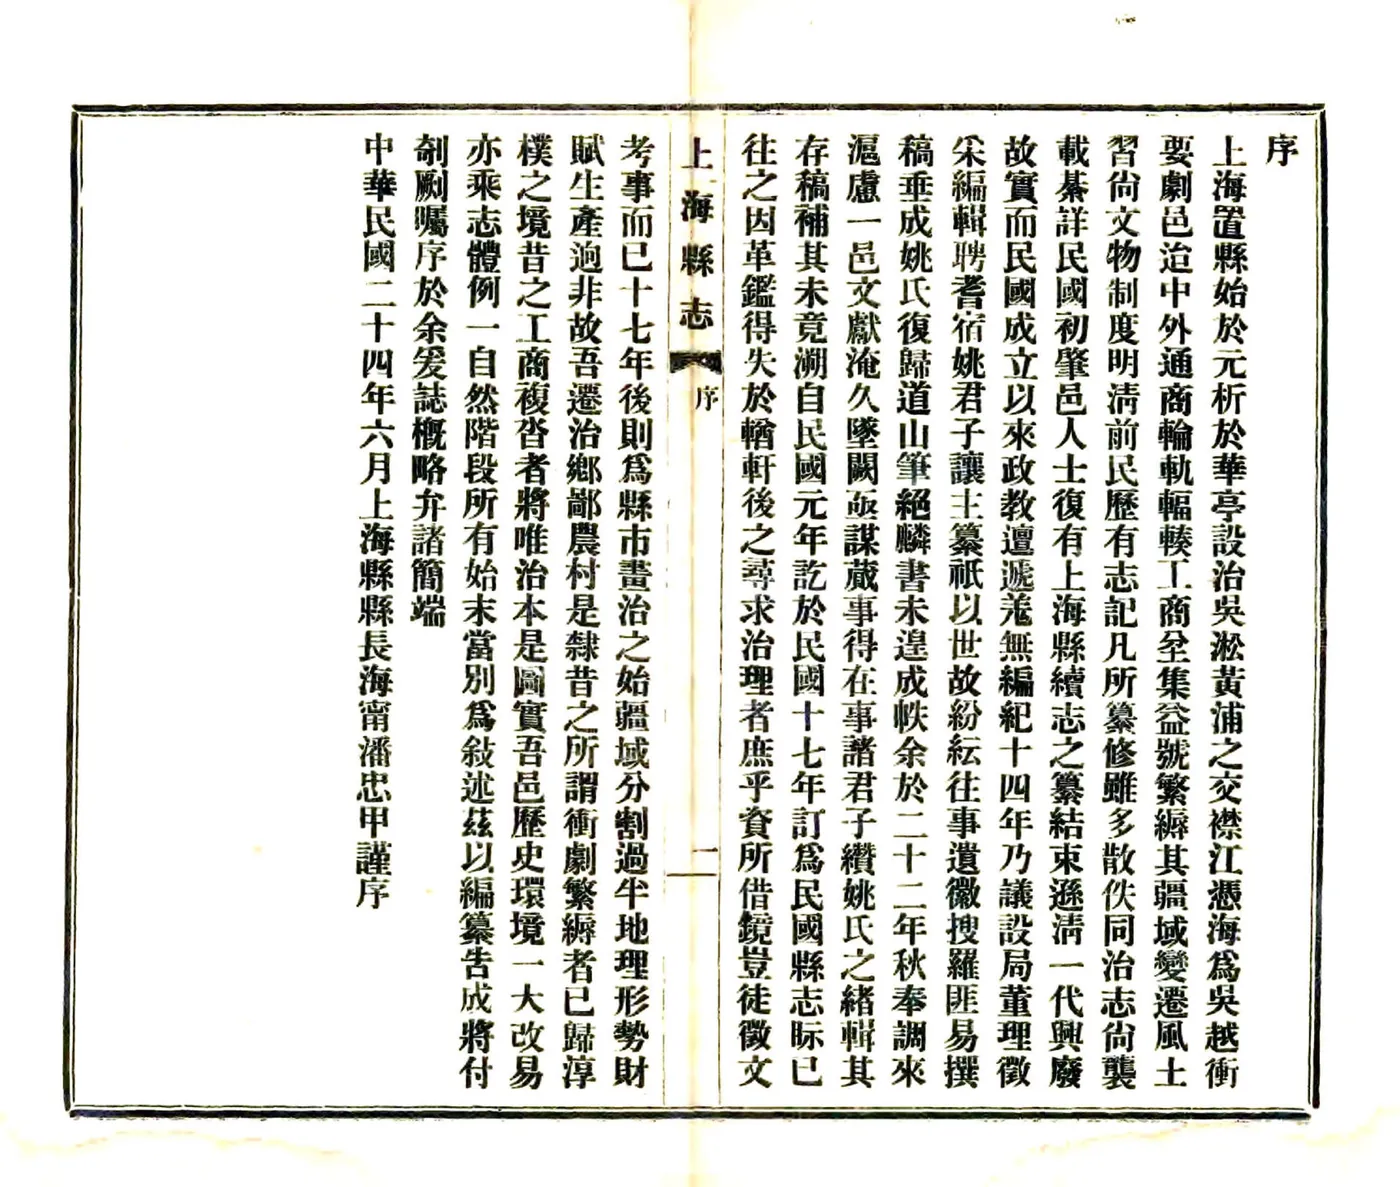 序
上海置縣始於元析於華亭設治吳淞黃浦之交襟江憑海為吳越衝
要劇邑迨中外通商輪軌輻輳工商坌集益號繁縟其疆域變遷風土
習尙文物制度明淸前民歷有志記凡所纂修雖多散佚同治志尙襲
載綦詳民國初肇邑人士復有上海縣續志之纂結束遜淸一代興廢
故實而民國成立以來政教遞羗無編紀十四年乃議設局董理徵
采編輯聘耆宿姚君子讓主纂祇以世故紛紜往事遺徽搜羅匪易撰
稿垂成姚氏復歸道山筆絕麟書未遑成帙余於二十二年秋奉調來
滬慮一邑文獻淹久墜闕亟謀蕆事得在事諸君子纘姚氏之緒輯其
存稿補其未竟溯自民國元年訖於民國十七年訂為民國縣志眎已
往之因革鑑得失於輶軒後之尋求治理者庶乎資所借鏡豈徒徵文
上海縣志 序 一
考事而已十七年後則為縣市畫治之始疆域分割過半地理形勢財
賦生產逈非故吾遷治鄉鄙農村是隸昔之所謂衝劇繁縟者已歸淳
樸之境昔之工商複沓者將唯治本是圖實吾邑歷史環境一大改易
亦乘志體例一自然階段所有始末當別為敍述茲以編纂吿成將付
剞劂囑序於余爰誌概略弁諸簡端
中華民國二十四年六月上海縣縣長海甯潘忠甲謹序